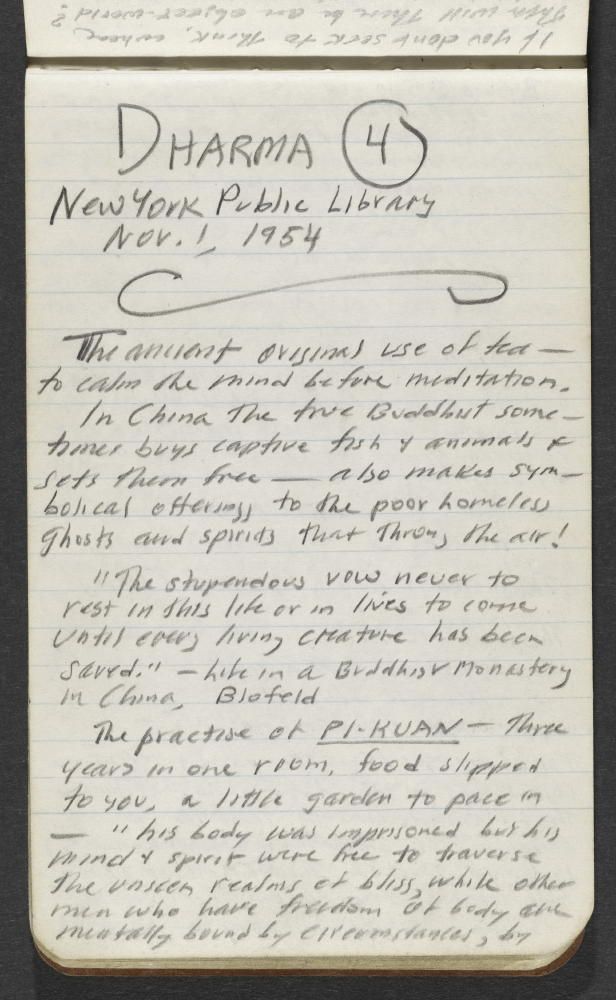 If you dont seek to think, where
then will there be an object-world?
DHARMA (4)
New York Public Library
Nov. 1, 1954
The ancient original use of tea —
to calm the mind before meditation.
In China the true Buddhist some-
times buys captive fish & animals &
sets them free — also makes sym-
bolical offerings to the poor homeless
ghosts and spirits that throng the air!
"The stupendous vow never to
rest in this life or in lives to come
until every living creature has been
saved." — Life in a Buddhist Monastery
in China, Blofeld
The practise of PI-KUAN — Three
years in one room, food slipped
to you, a little garden to pace in
— "his body was imprisoned but his
mind & spirit were free to traverse
the unseen realms of bliss, while other
men who have freedom of body are
mentally bound by circumstances, by